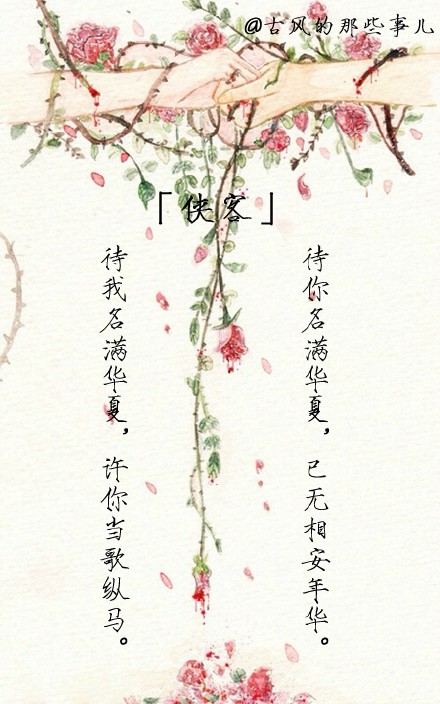 @古风的那些事儿
「侠客」
待你名满华夏，已无相安年华。
待我名满华夏，许你当歌纵马。